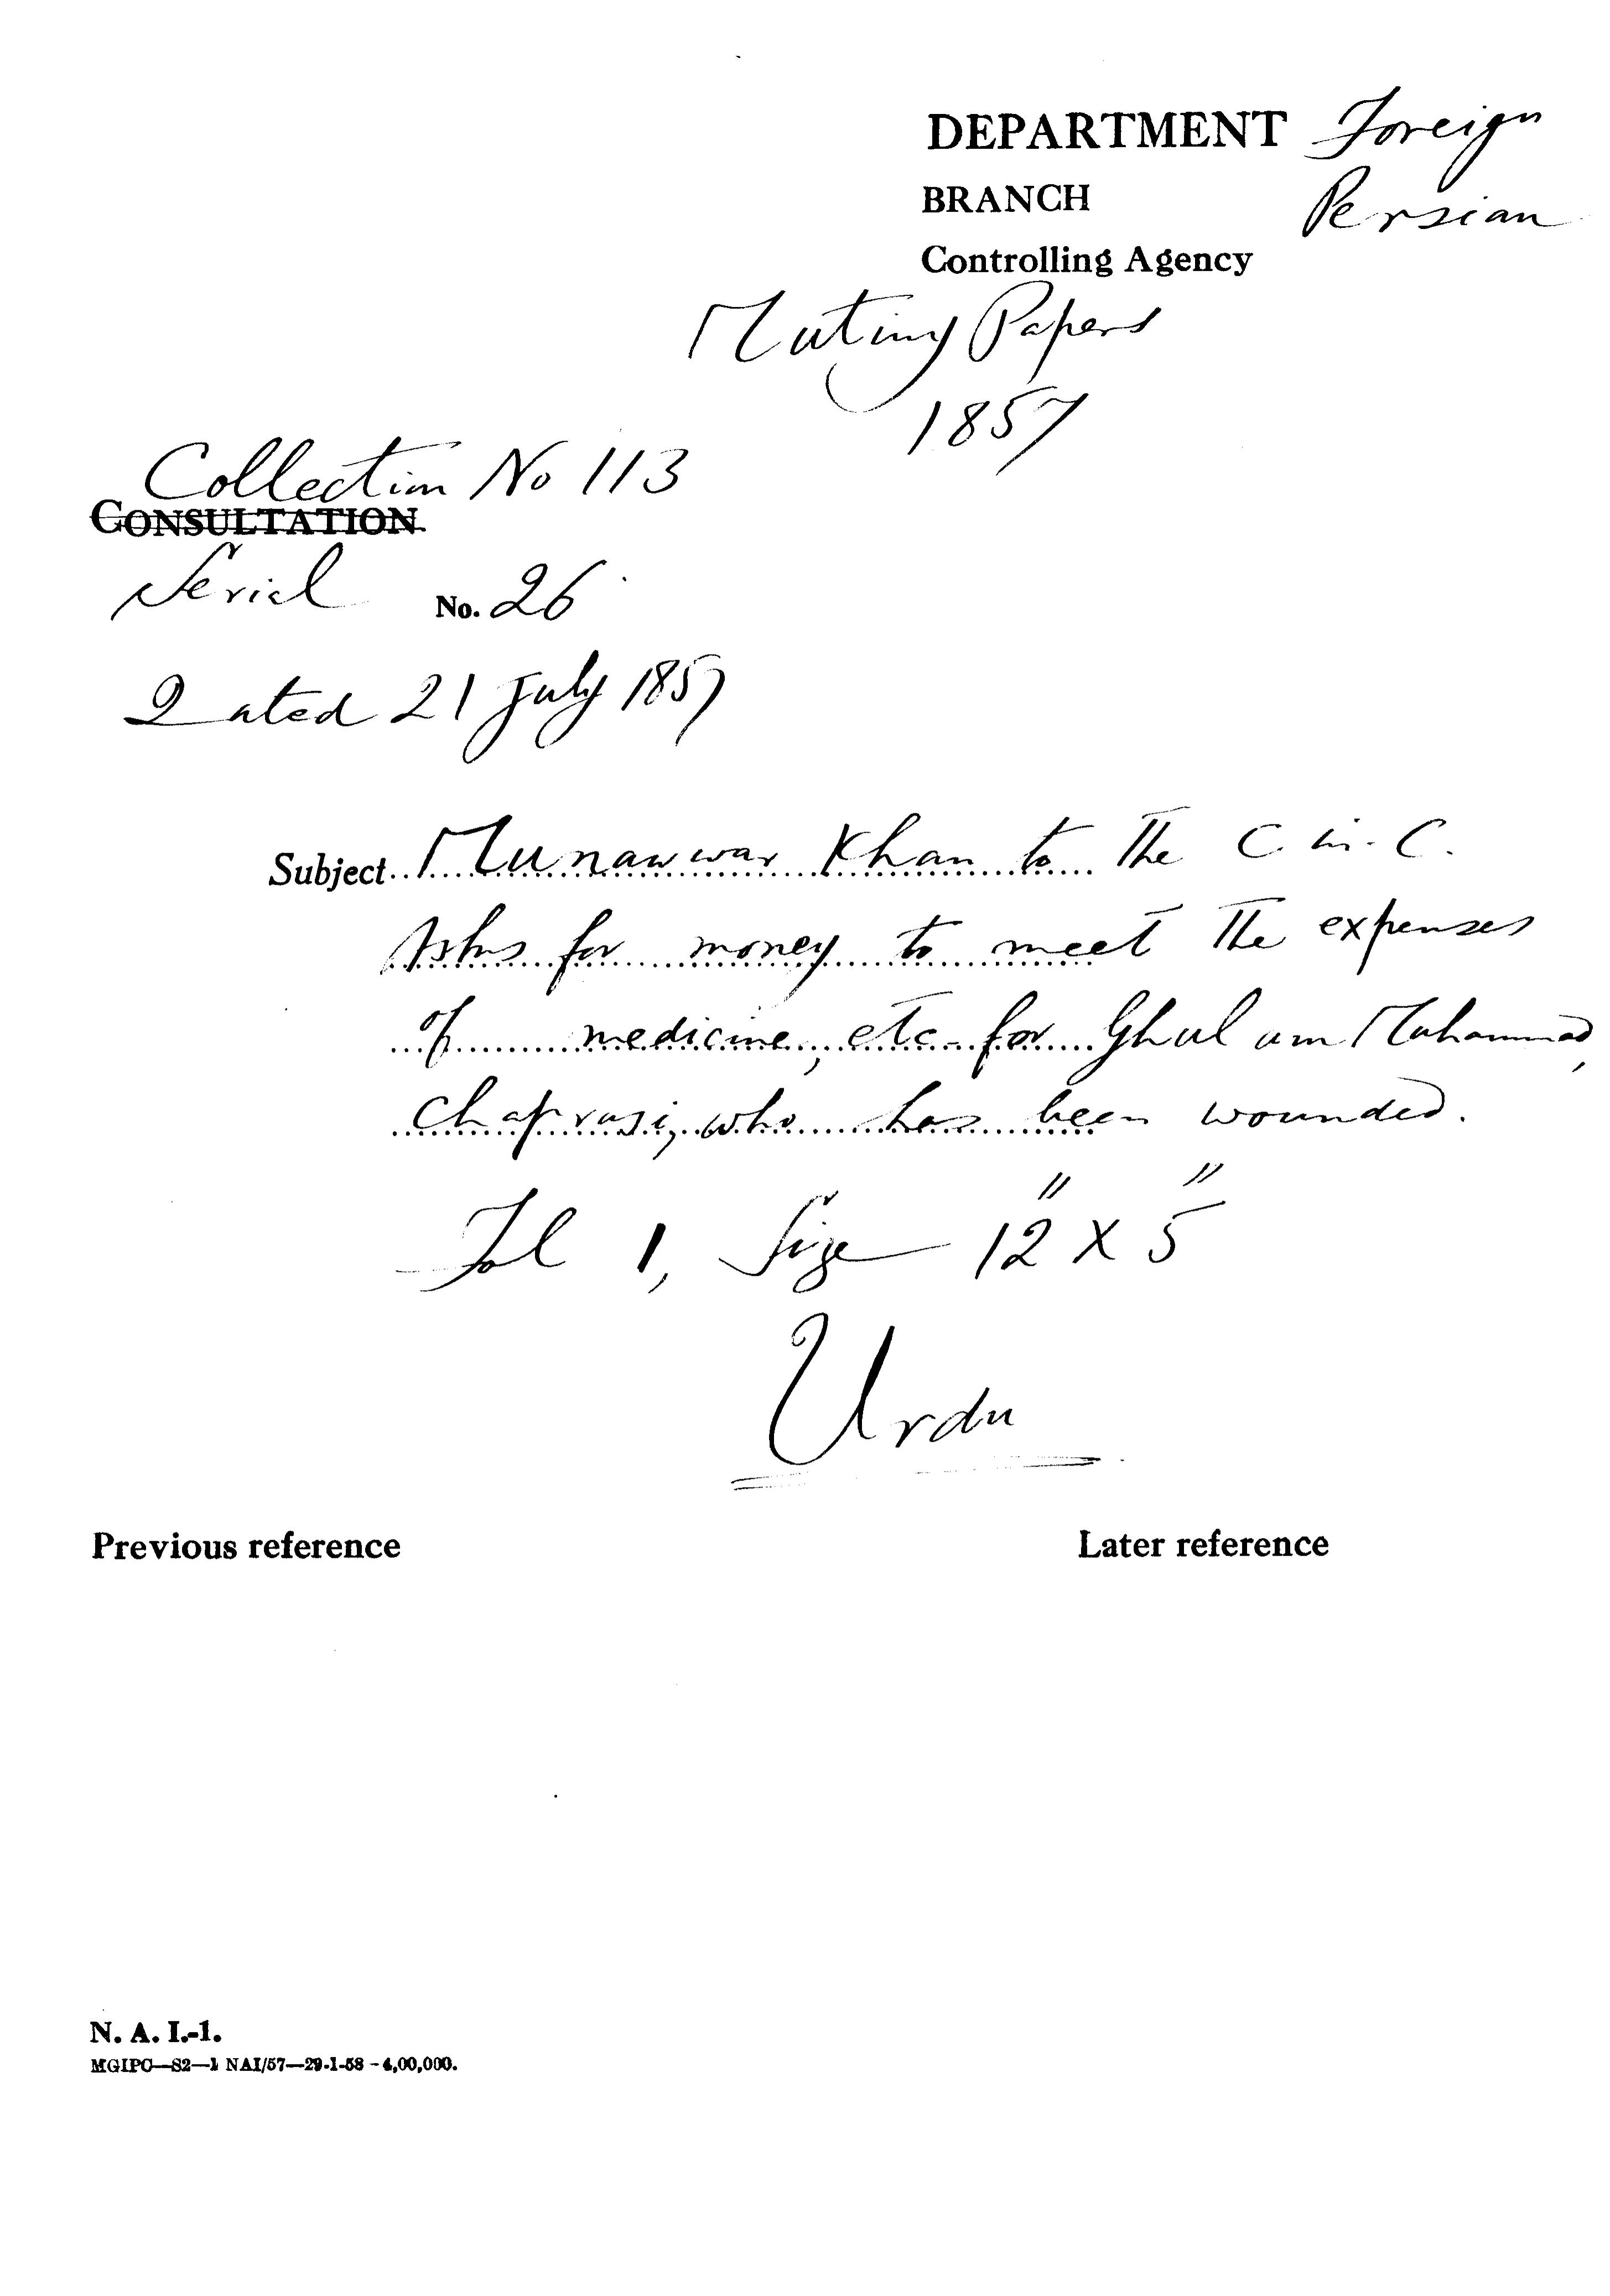 DEPARTMENT Foreign
BRANCH Persian
Controlling Agency
Mutiny Papers
1857
Collection No 113
CONSULTATION
Serial No. 26
Dated 21 July 1857
Subject Munawwar Khan to the C-in-C.
Asks for money to meet the expenses
of medicine, etc. for Ghulam Muhammad,
Chaprasi, who has been wounded.
Fol 1, Size 12" x 5"
Urdu
Previous reference Later reference
N. A. I.-1.
MGIPC—S2—1 NAI/57—29-1-58 - 4,00,000.